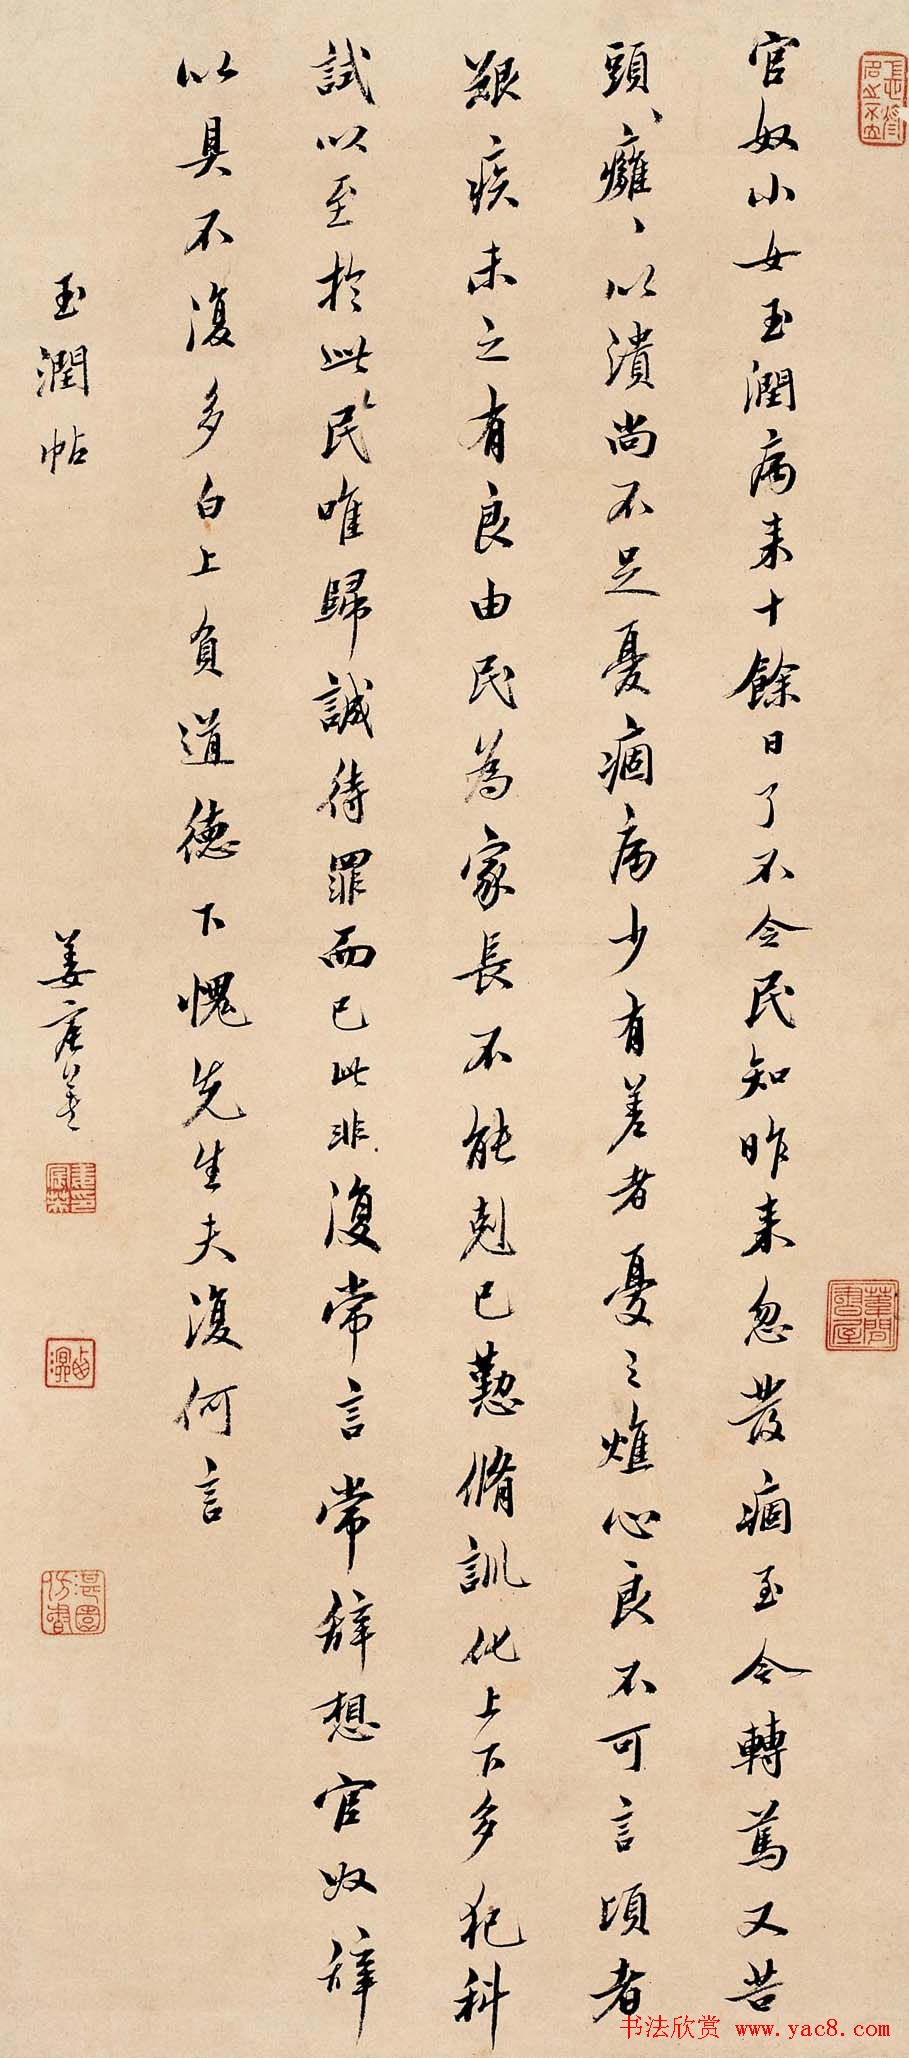 官奴小女玉潤病来十餘日了不令民知昨来忽發痼至今轉篤又苦
頭癰、以潰尚不足憂痼病少有差者憂之燋心良不可言頃者
艱疾未之有良由民為家長不能剋己懃脩訓化上下多犯科
試以至於此民唯歸誠待罪而已此非復常言常辞想官奴辞
以具不復多白上負道德下愧先生夫復何言
玉潤帖
姜宸英
书法欣赏 www.yac8.com